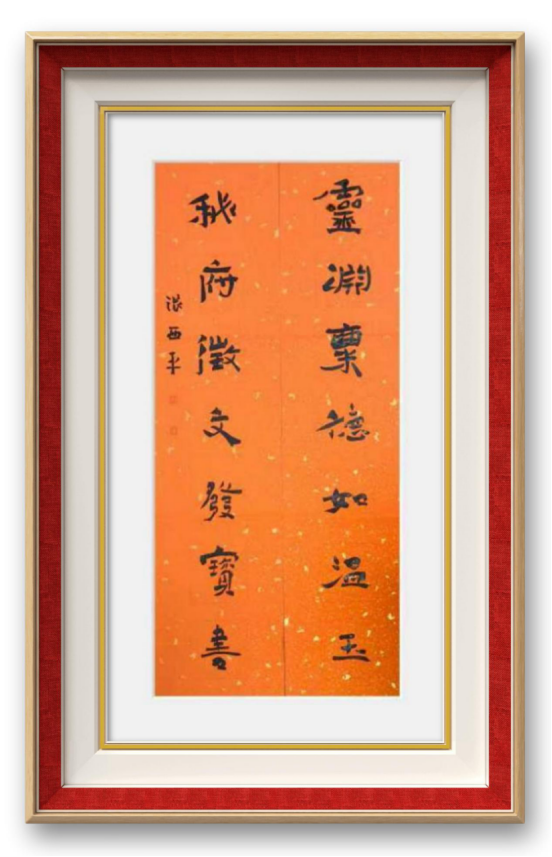 靈淵稟德如温玉
秘府徵文發寶書
西平